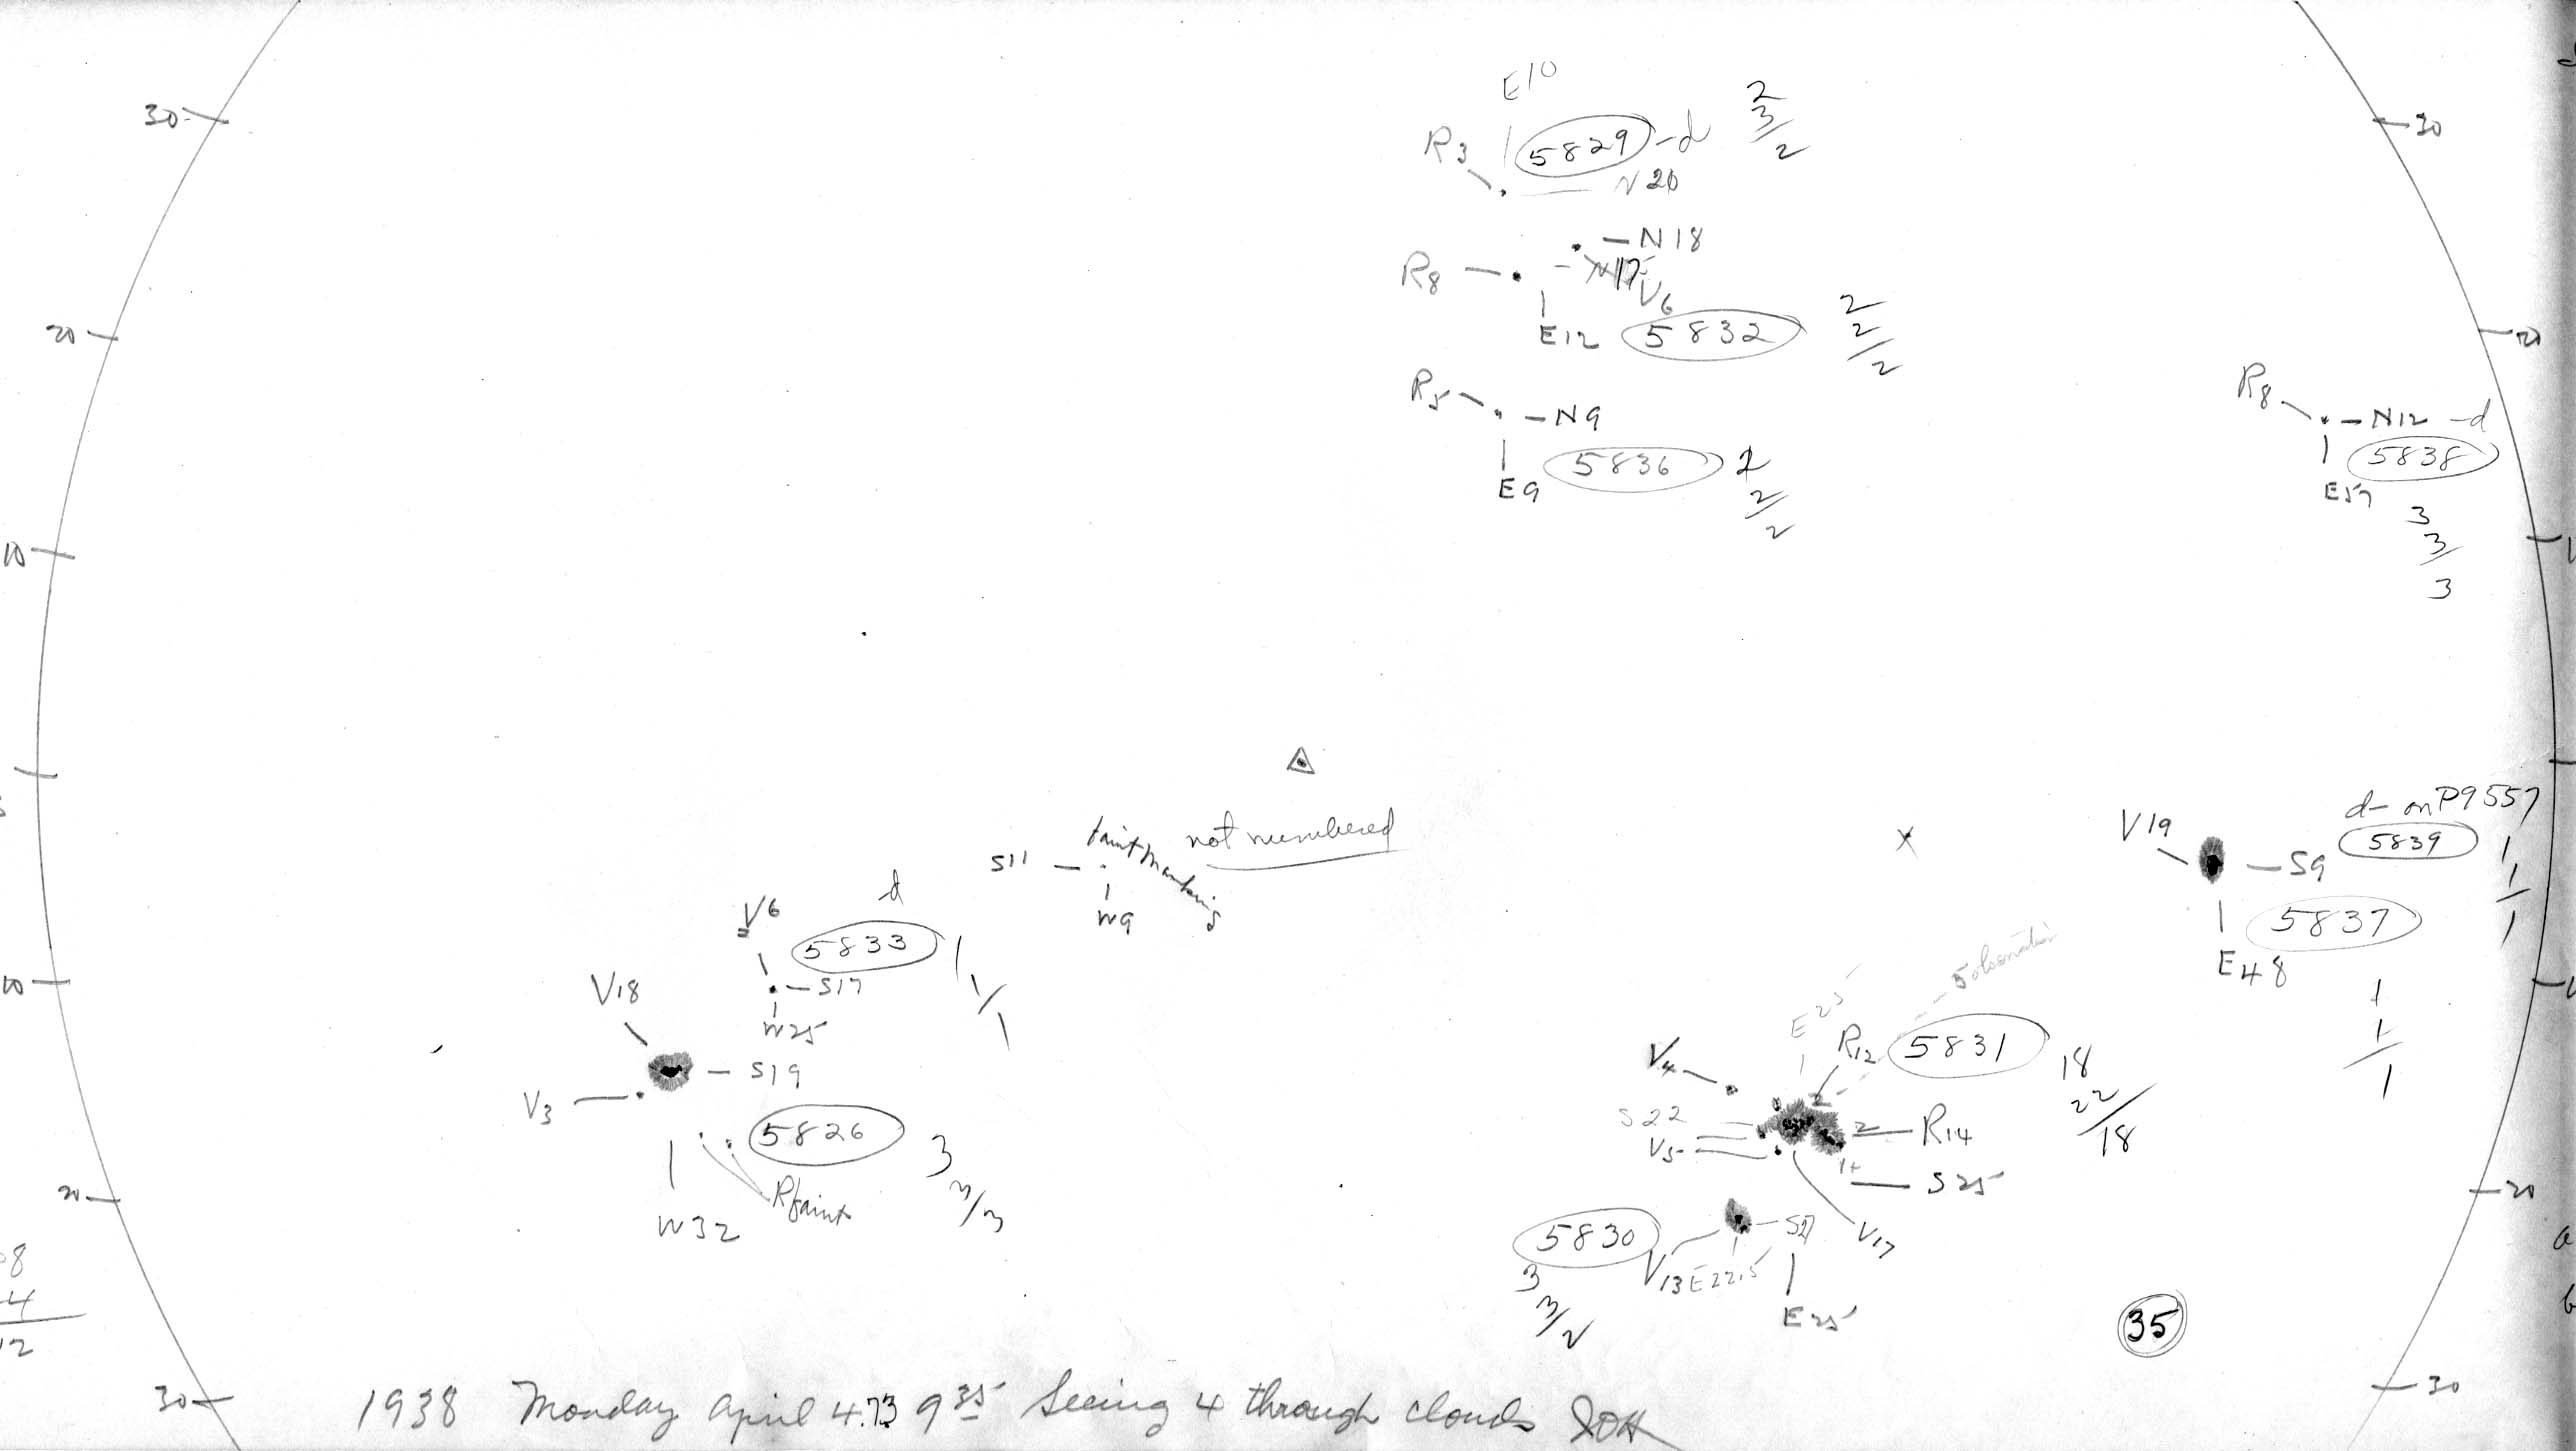 30
30
E10
R3
5829 -d
2
3/2
N20
N18
R8
N17
V6
E12
5832
2
2/2
20
20
R5
N9
E9
5836
2
2/2
R8
N12 -d
5838
E57
3
3/3
10
faint marking
not numbered
S11
W9
d- on P9557
5839
1
1/1
V19
S9
5837
E48
1
1/1
V6
d
5833
1
1/1
S17
W25
10
V18
S19
V3
5826
3
3/3
R faint
W32
20
E25
5 observation
R12
5831
18
22/18
V4
S22
V5
2
2
R14
1+
S25
V17
20
5830
3
3/2
V13
E22.5
E25
35
8
4
12
30
30
1938 Monday April 4.73 9 35 Seeing 4 through clouds JOH